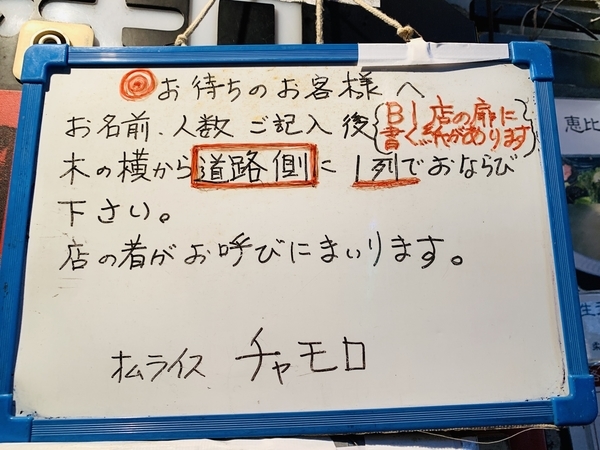 ◎お待ちのお客様へ
お名前、人数ご記入後{B1店の扉に
書く紙があります}
木の横から道路側に1列でおならび
下さい。
店の者がお呼びにまいります。
オムライス チャモロ
恵比
生